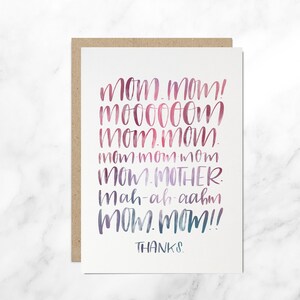 mom. mom!
mooooom
mom. mom.
mom mom mom
mom. mother.
mah-ah-aahm
mom. mom!!
THANKS.